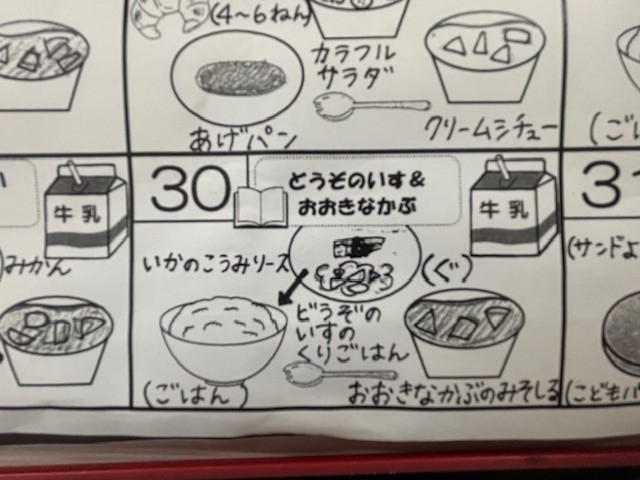 (4〜6ねん)
カラフル
サラダ
あげパン
クリームシチュー
(ごは
牛乳
みかん
30
どうぞのいす&
おおきなかぶ
牛乳
31
いかのこうみソース
(ぐ)
どうぞの
いすの
くりごはん
(ごはん)
おおきなかぶのみそしる
(サンドよ
(こどもパ